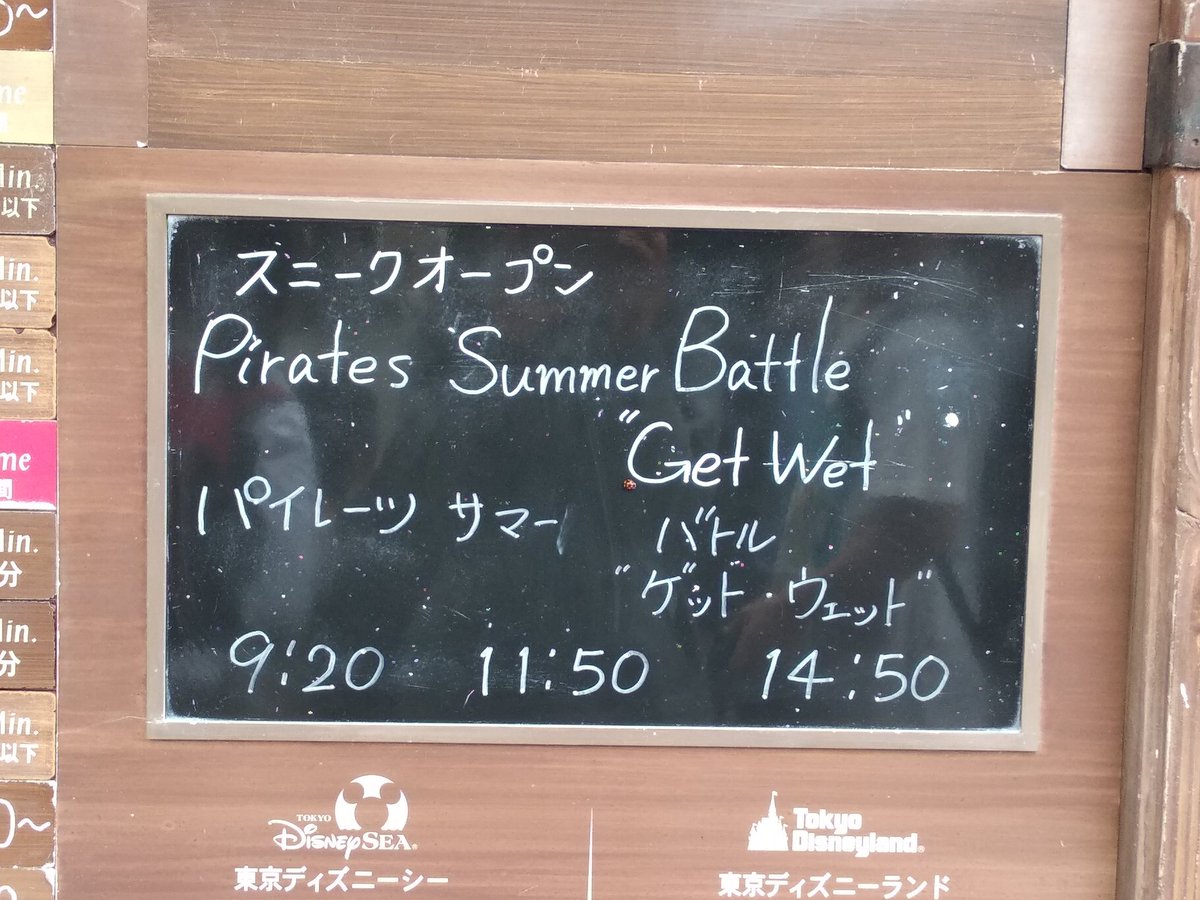 0～
me
Min.
以下
Min.
以下
Min.
以下
me
間
Min.
分
Min.
分
Min.
以下
0～
スニークオープン
Pirates Summer Battle
"Get Wet"
パイレーツ サマー
バトル
"ゲッド・ウェット"
9:20 11:50 14:50
TOKYO
DISNEYSEA®
東京ディズニーシー
Tokyo
Disneyland®
東京ディズニーランド